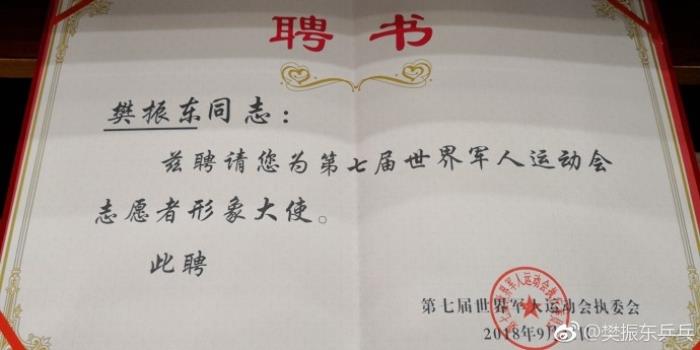 聘书
樊振东同志：
兹聘请您为第七届世界军人运动会
志愿者形象大使。
此聘
第七届世界军人运动会执委会
2018年9月
@樊振东乒乓